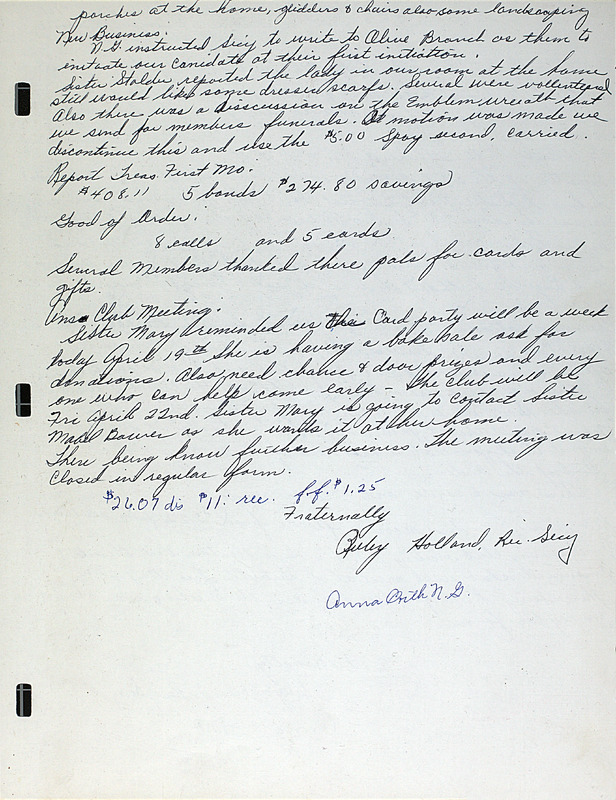 porches at the home, glidders & chairs also some landscaping
New Business.
N.G. instructed Secy to write to Olive Branch as them to
instuate our canidate at their first initiation.
Sister Stalder reported the lady in our room at the home
still would like some dresser scarfs. Several were vollenteered
Also there was a discussion on the Emblem wreath that
we send for members funerals. A motion was made we
discontinue this and use the $5.00 Spay second, carried.
Report Treas. First Mo.
$408.11 5 bonds $274.80 savings
Good of Order.
8 calls and 5 cards
Several Members thanked there pals for cards and
gifts.
Club Meeting.
Sister Mary reminded us this Card party will be a week
today April 19th She is having a bake sale ask for
donations. Also need chance & door prizes and every
one who can help come early - The Club will be
Fri April 22nd. Sister Mary is going to contact Sister
Mabel Bower as she wants it at her home.
There being know further business. The meeting was
Closed in regular form.
$26.07 dis $11: rec. f.f. $1.25
Fraternally
Ruby Holland, Rec. Secy
Anna N.G.